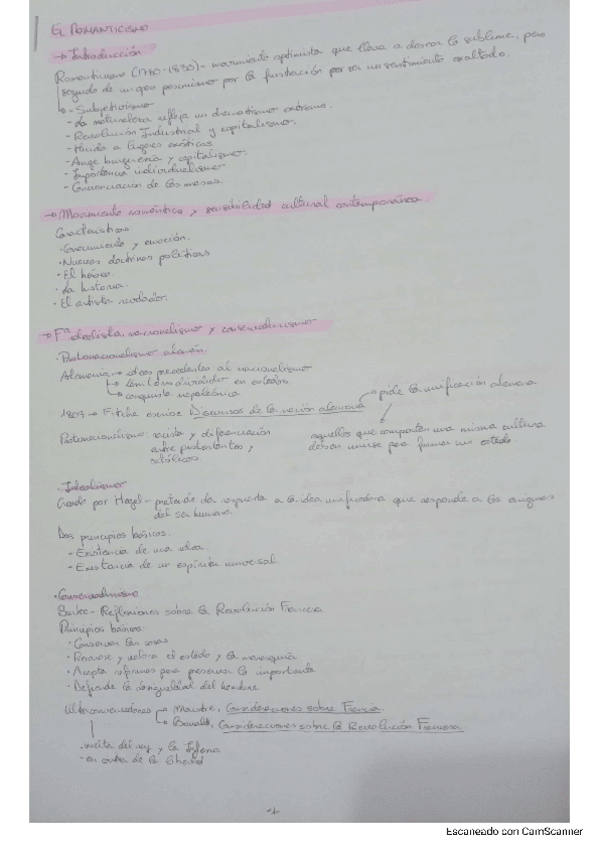 EL ROMANTICISMO
→ Introducción
Romanticismo (1770-1830) - movimiento optimista que lleva a desear lo sublime, pero
seguido de un gran pesimismo por la frustración por ser un sentimiento exaltado.
- Subjetivismo
- La naturaleza refleja un dramatismo extremo.
- Revolución Industrial y capitalismo.
- Huida a lugares exóticos
- Auge burguesía y capitalismo.
- Importancia individualismo
- Concienciación de las masas.
→ Movimiento romántico y sensibilidad cultural contemporánea.
Características
· Conocimiento y emoción.
· Nuevas doctrinas políticas
· El héroe.
· La historia.
· El artista creador.
→ Fª idealista, nacionalismo y conservadurismo
· Protonacionalismo alemán.
Alemania → ideas precedentes al nacionalismo
↳ territorio dividido en estados
↳ conquista napoleónica
→ pide la unificación alemana
1807 → Fitche escribe Discursos de la nación alemana
aquellos que comparten una misma cultura
deben unirse para formar un estado
Protonacionalismo: racista y diferenciación
entre protestantes y
católicos
· Idealismo
Creado por Hegel - pretende dar respuesta a la idea unificadora que responde a los enigmas
del ser humano.
Dos principios básicos:
- Existencia de una idea.
- Existencia de un espíritu universal
· Conservadurismo
Burke - Reflexiones sobre la Revolución Francesa
Principios básicos:
· Conservar las cosas
· Renovar y valora el estado y la monarquía
· Acepta reformas para preservar lo importante
· Defiende la desigualdad del hombre
Ultraconservadores → Maistre, Consideraciones sobre Francia.
↳ Bonald, Consideraciones sobre la Revolución Francesa
· vuelta del rey y la Iglesia
· en contra de la libertad
-1-
Escaneado con CamScanner